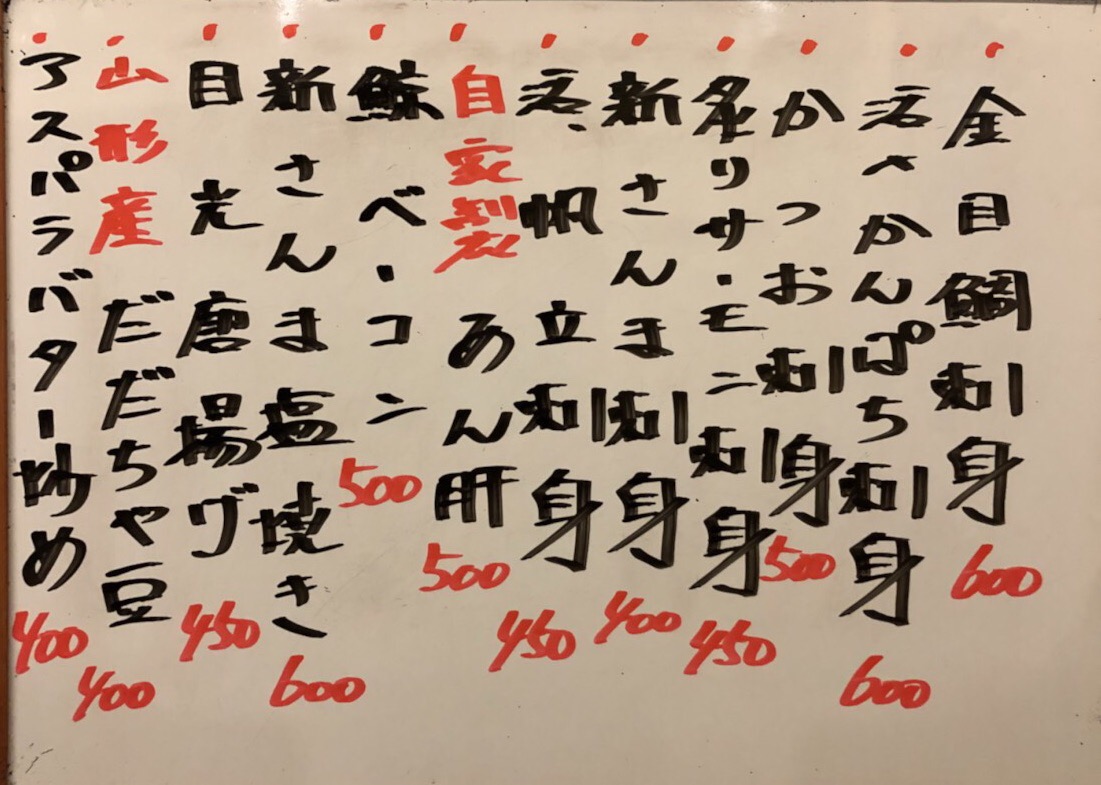 金目鯛刺身 600
活〆かんぱち刺身 600
かつお刺身 500
炙りサーモン刺身 450
新さんま刺身 400
活帆立刺身 450
自家製あん肝 500
鯨ベーコン 500
新さんま塩焼き 600
目光唐揚げ 450
山形産だだちゃ豆 400
アスパラバター炒め 400